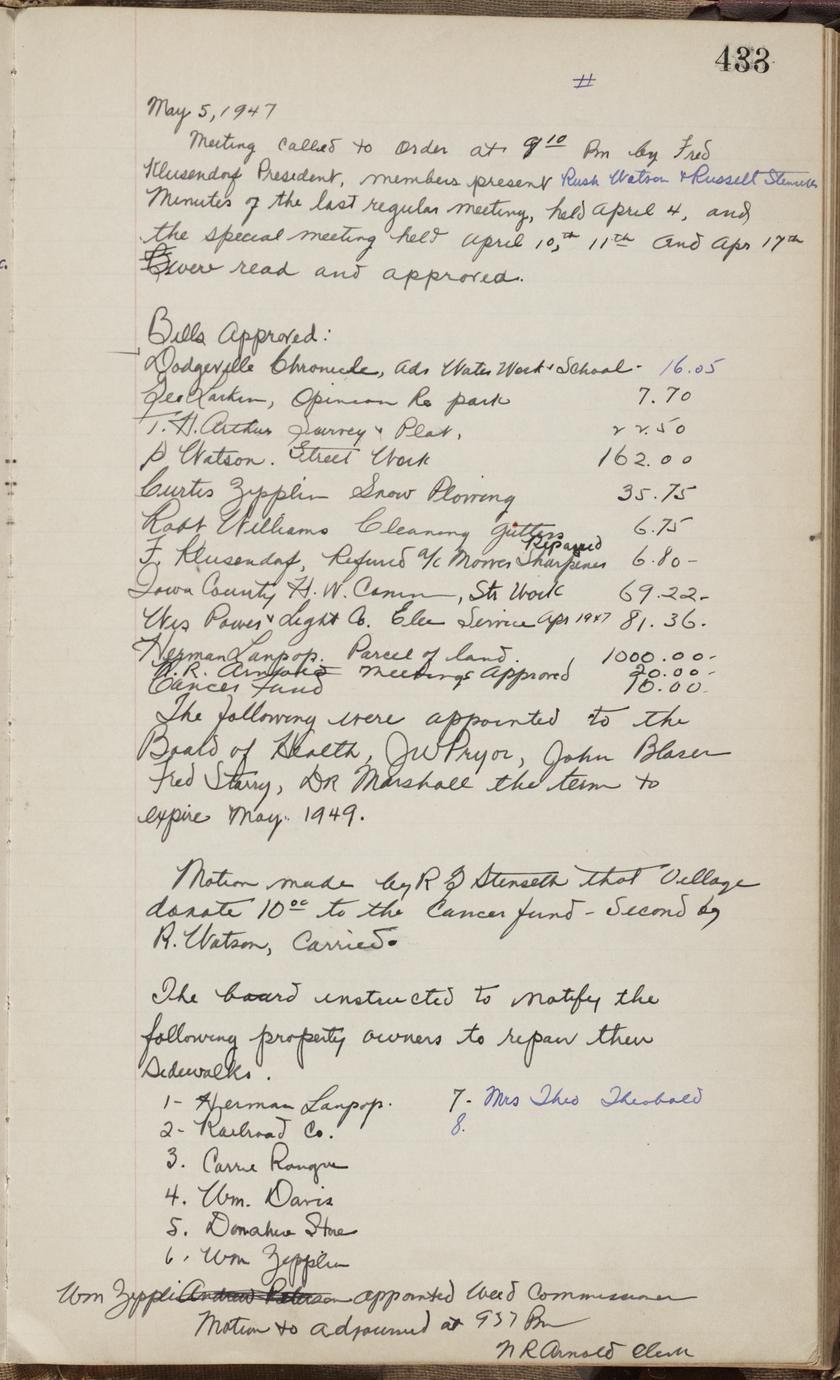 433
#
May 5, 1947
Meeting called to order at 9 10 Pm by Fred
Klusendorf President, members present Rush Watson + Russell Stenseth
Minutes of the last regular meeting, held April 4, and
the special meeting held April 10,th 11th and Apr 17th
were read and approved.
Bills Approved:
Dodgeville Chronicle, Ads Water Work + School - 16.05
Geo Larkin, Opinion Re park 7.70
T. H. Arthur Survey + Plat, 22.50
P Watson. Street Work 162.00
Curtis Zepplin Snow Plowing 35.75
Robt Williams Cleaning gutters 6.75
Repaired
F. Klusendorf, Refund a/c Mower Sharpener 6.80-
Iowa County H. W. Comm, Str Work 69.22-
Wis Power + Light Co. Elec Service Apr 1947 81.36-
Herman Lanpop. Parcel of land. 1000.00-
N. R. Arnold meetings Approved 20.00-
Cancer Fund 10.00-
The following were appointed to the
Board of Health, JW Pryor, John Blaser
Fred Starry, DR Marshall the term to
expire May. 1949.
Motion made by R G Stenseth that Village
donate 10 00 to the Cancer fund - Second by
R. Watson, Carried.
The board instructed to notify the
following property owners to repair their
Sidewalks.
1- Herman Lanpop. 7- Mrs Theo Theobald
2- Railroad Co. 8.
3. Carrie
4. Wm. Davis
5. Donahue Store
6. Wm Zepplin
Wm Zeppli Andrew Peterson appointed Weed Commissioner
Motion to adjourned at 937 Pm
N R Arnold Clerk